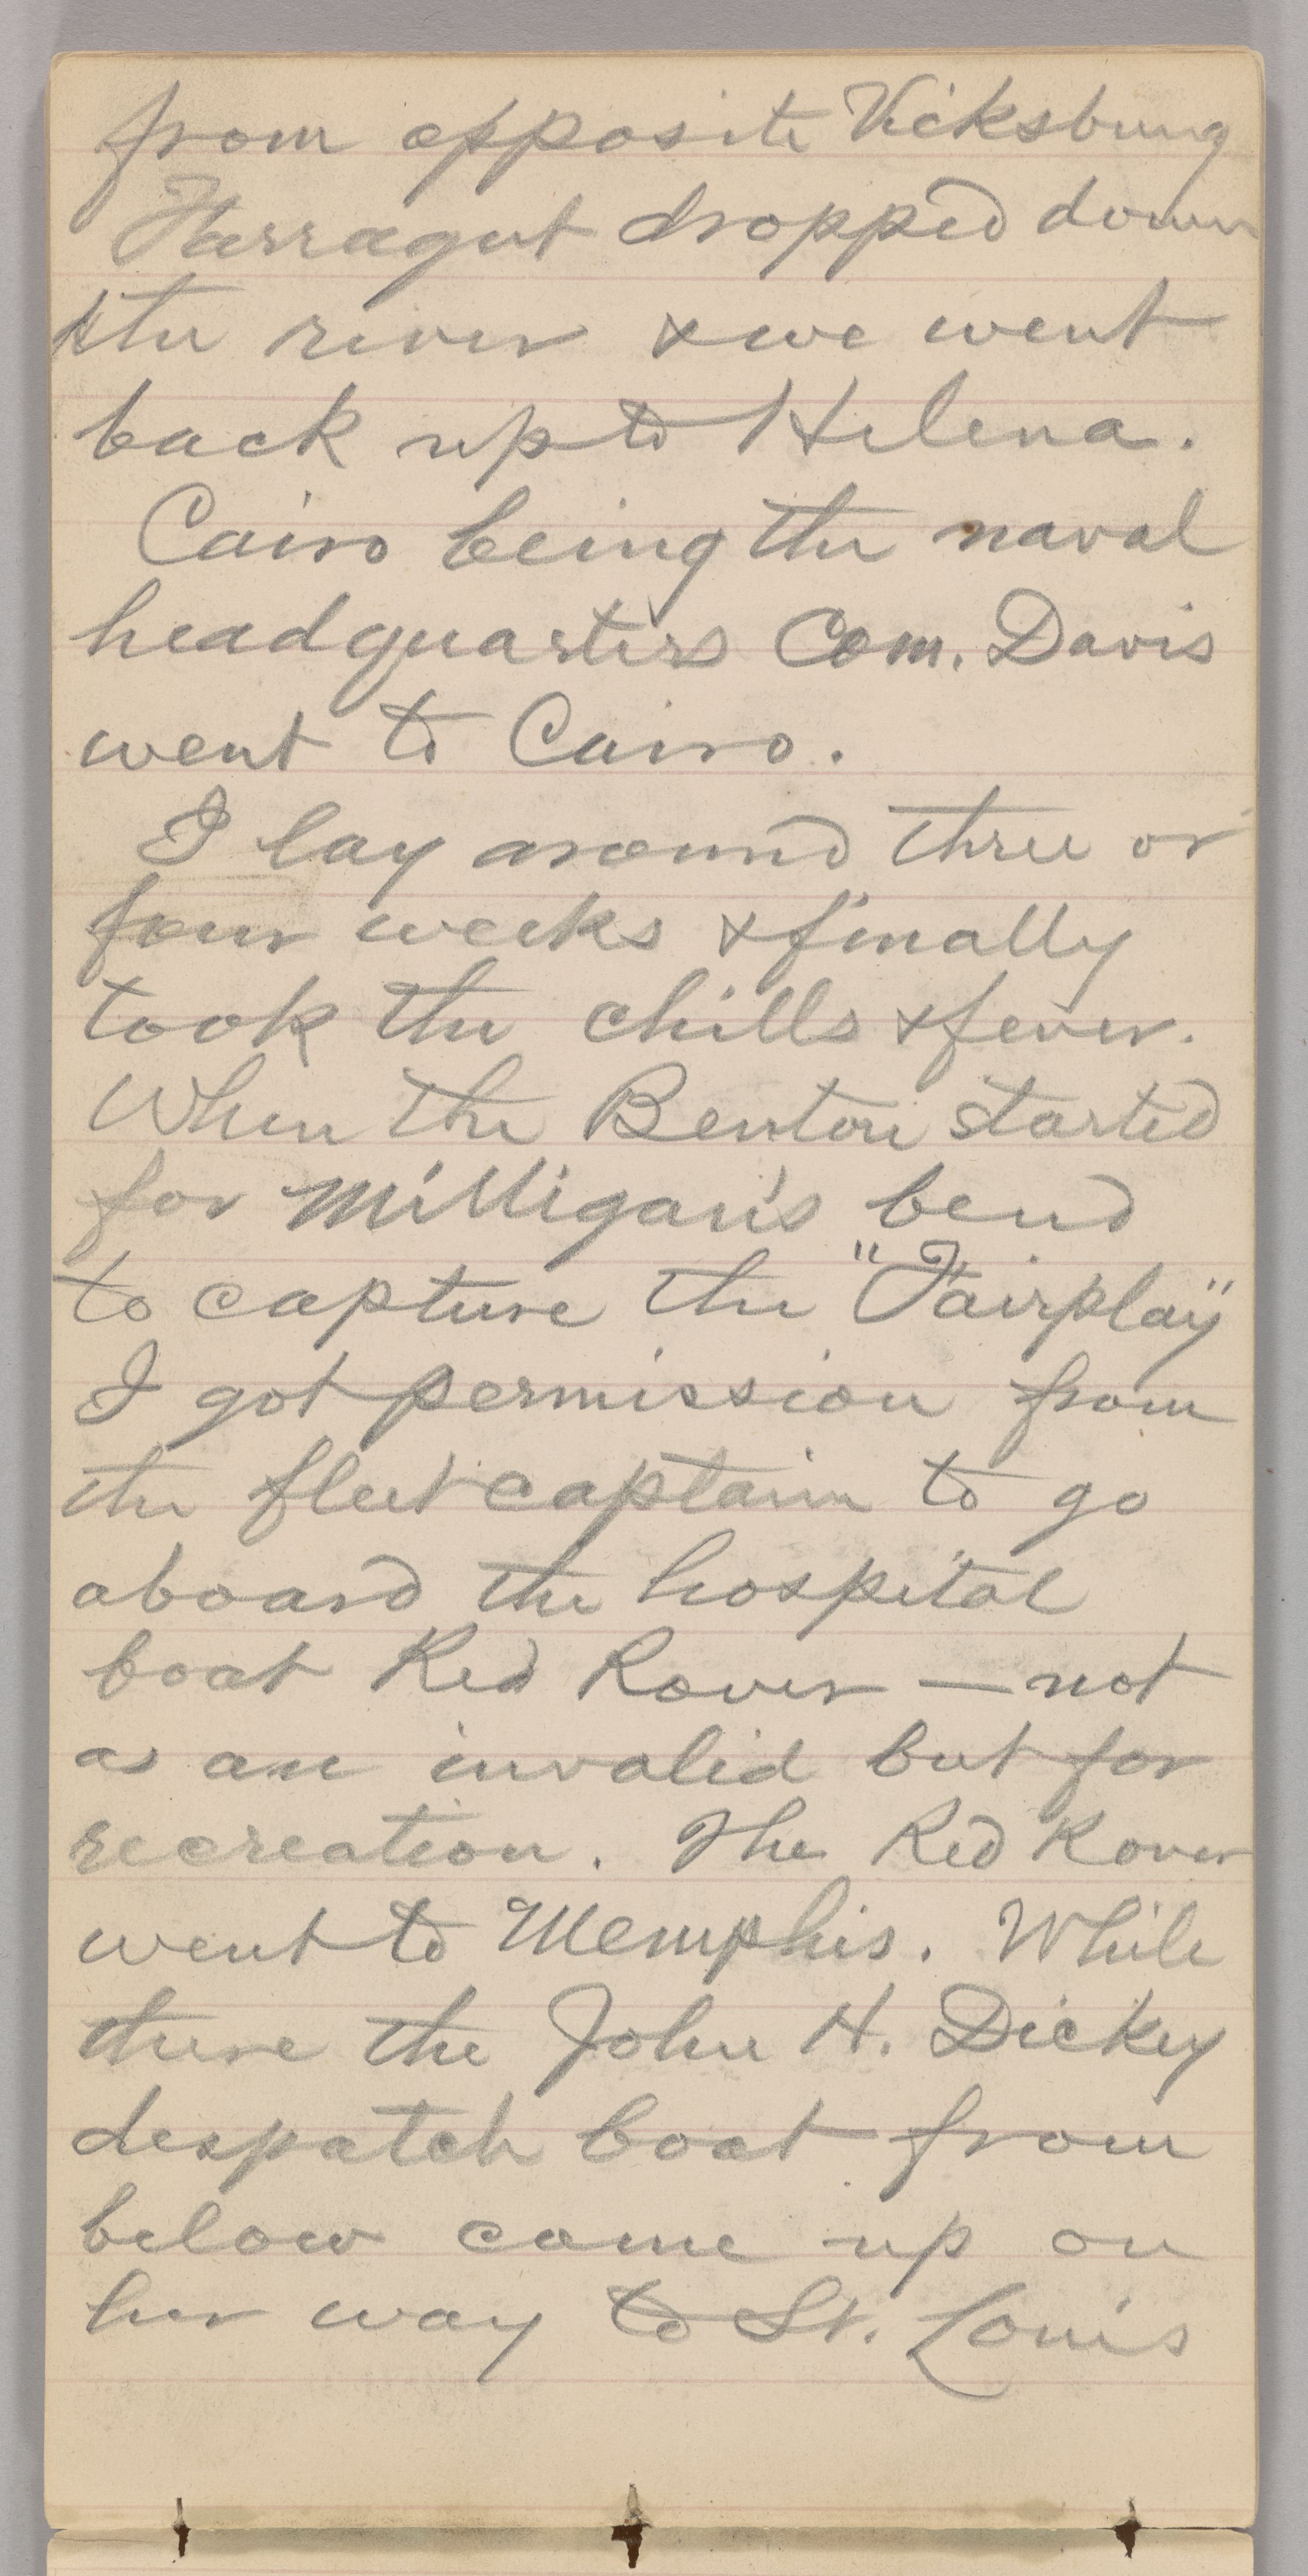 from opposite Vicksburg
Farragut dropped down
the river & we went
back up to Helena.
Cairo being the naval
headquarters Com. Davis
went to Cairo.
I lay around three or
four weeks & finally
took the chills & fever.
When the Benton started
for Milligan's bend
to capture the "Fairplay"
I got permission from
the fleet captain to go
aboard the hospital
boat Red Rover — not
as an invalid but for
recreation. The Red Rover
went to Memphis. While
there the John H. Dickey
despatch boat from
below came up on
her way to St. Louis